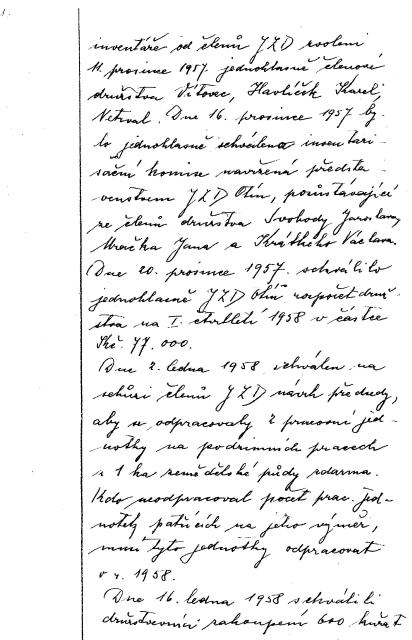 inventáře od členů JZD zvoleni
11. prosince 1957. jednohlasně členové
družstva Vítovec, Havlíček Karel,
Netrval. Dne 16. prosince 1957 by-
lo jednohlasně schválena inventari-
sační komise navržená představ-
venstvem JZD Otín, pozůstávající
ze členů družstva Svobody Jaroslava,
Mračka Jana a Krátkého Václava.
Dne 20. prosince 1957. schválilo
jednohlasně JZD Otín rozpočet druž-
stva na I. čtvrtletí 1958 v částce
Kčs. 77.000.
Dne 2. ledna 1958 schválen na
schůzi členů JZD návrh předsedy,
aby se odpracovaly 2 pracovní jed-
notky na podzimních pracech
z 1 ha zemědělské půdy zdarma.
Kdo neodpracoval počet prac. jed-
notek patřících na jeho výměr,
musí tyto jednotky odpracovat
v r. 1958.
Dne 16. ledna 1958 schválili
družstevníci zakoupení 600 kuřat